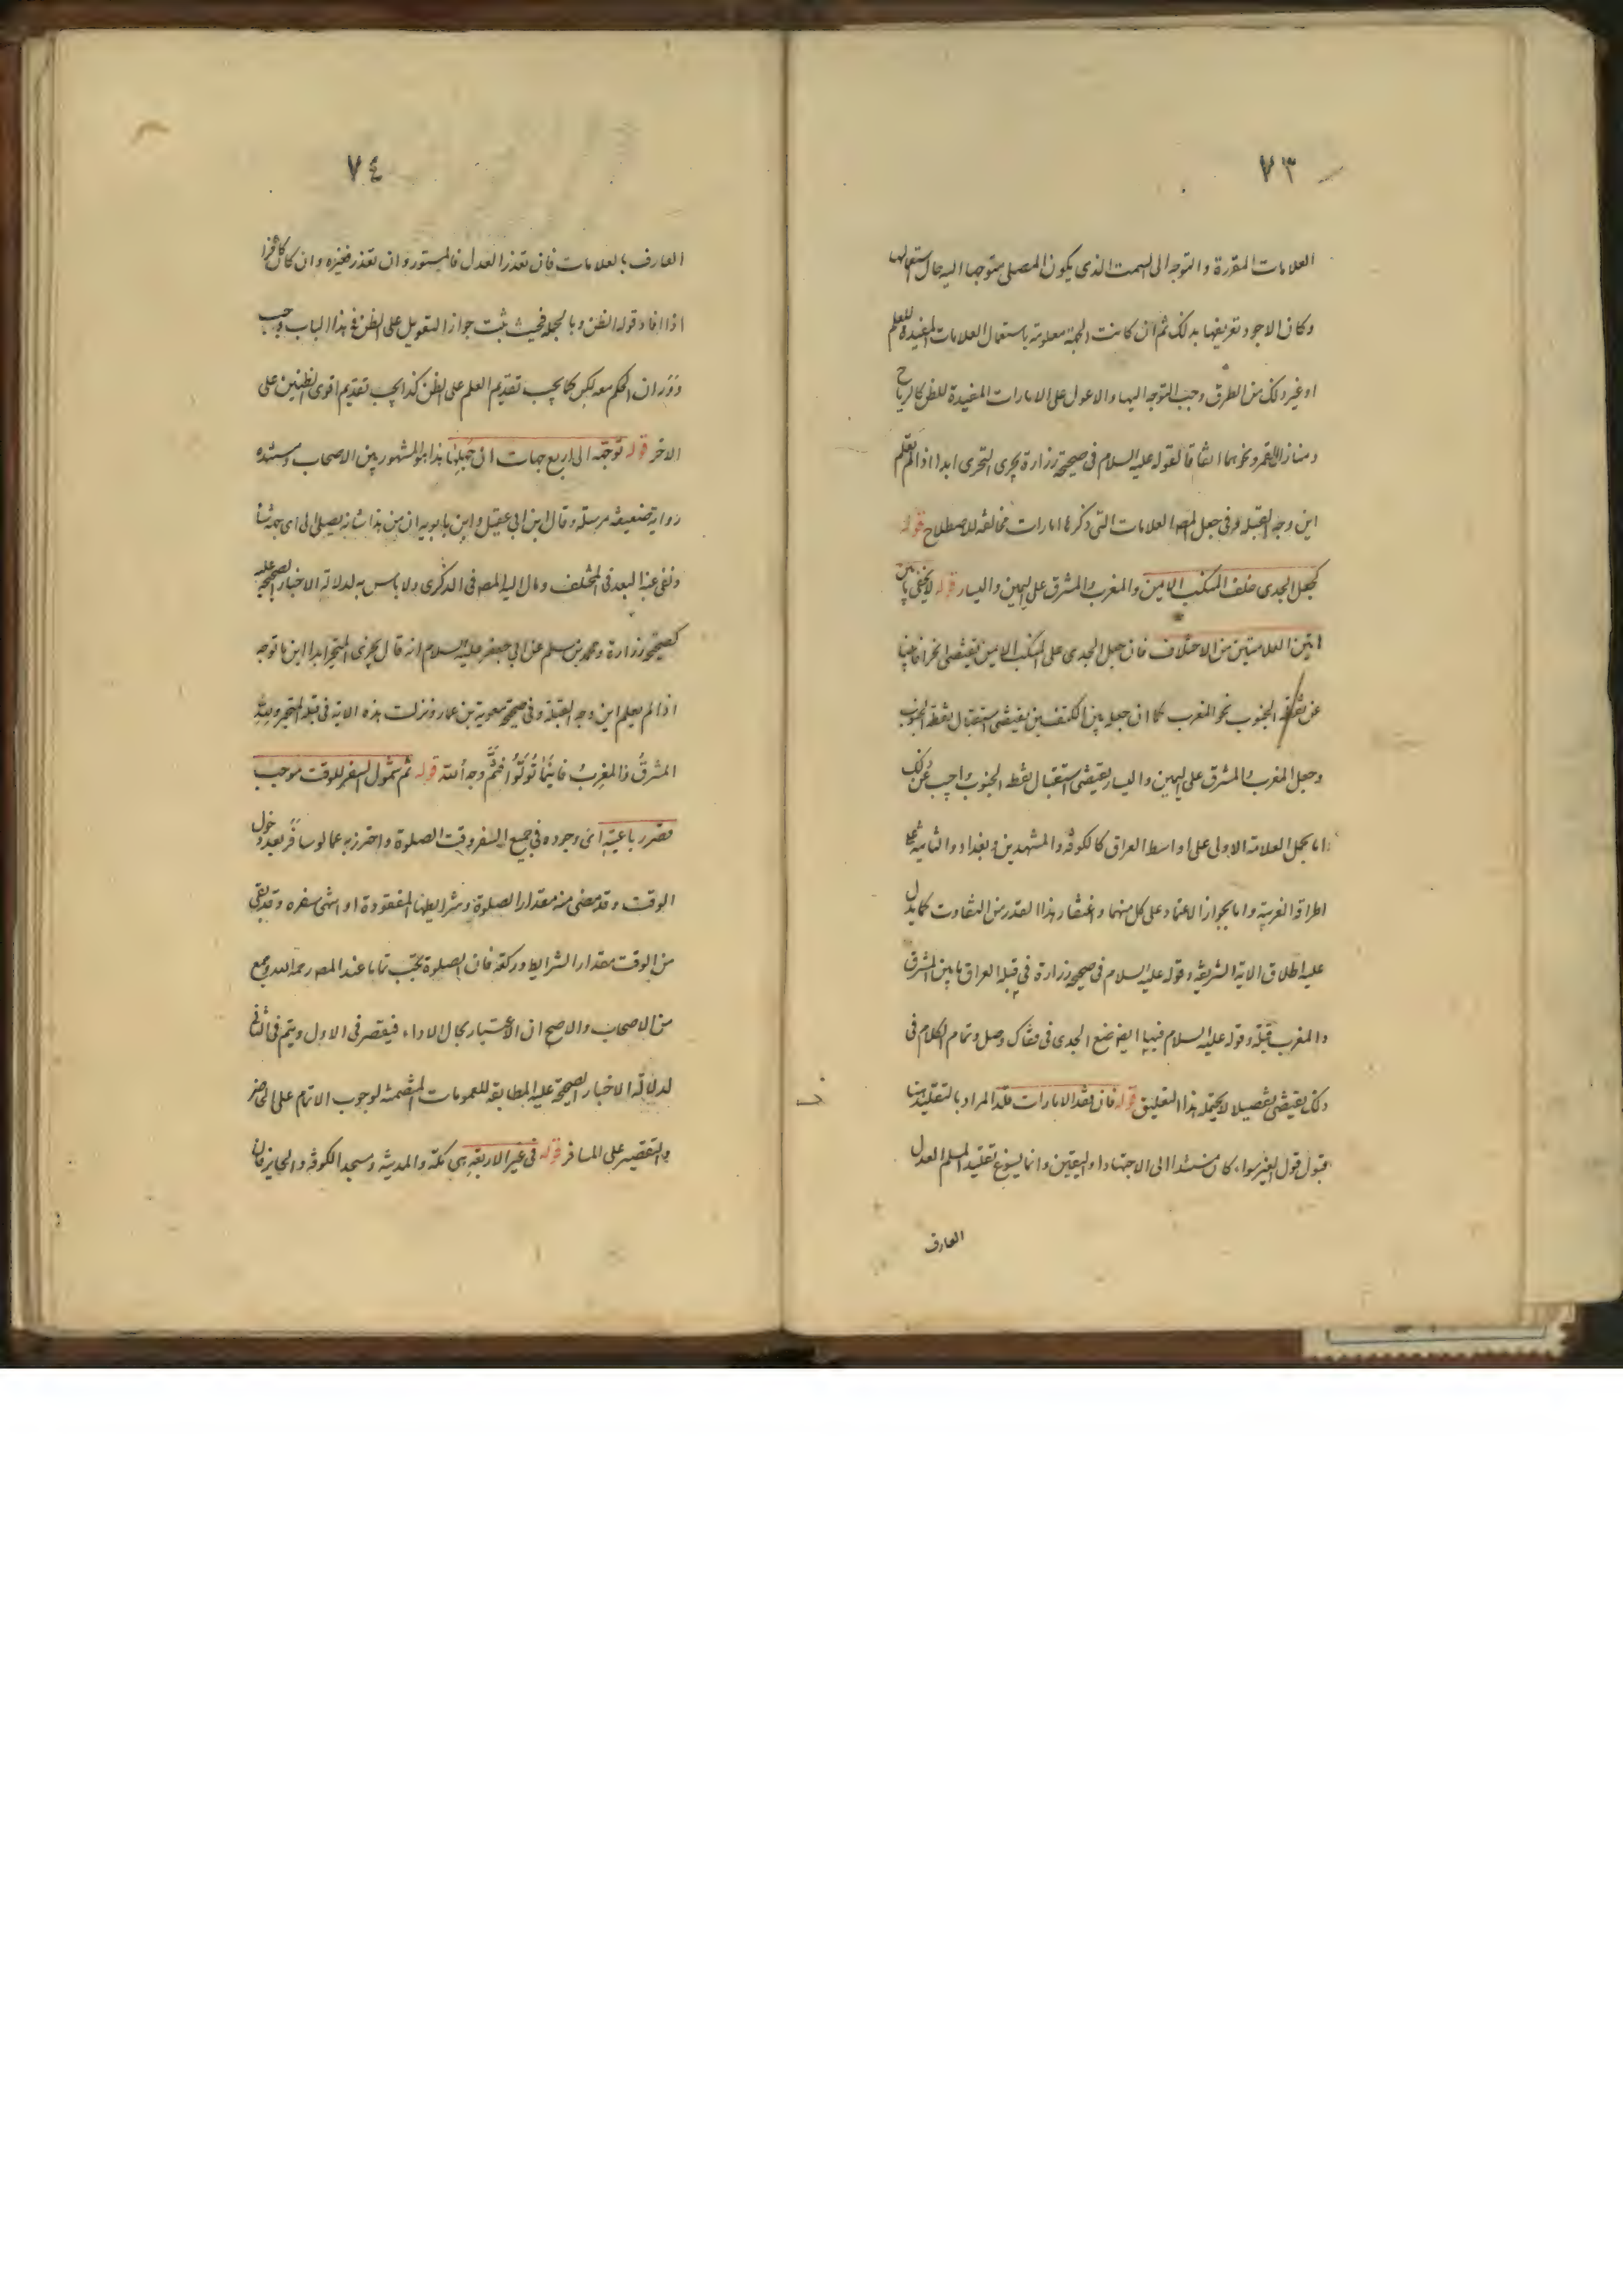 ٧٣
العلامات المقررة والتوجه الى السمت الذى يكون المصلى متوجها اليه حال استعمالها
وكان الاجود تعريفها بذلك ثم ان كانت الجهة معلومة باستعمال العلامات المفيدة للعلم
او غير ذلك من الطرق وجب التوجه اليها والا عول على الامارات المفيدة للظن كالرياح
ومنازل القمر ونحوهما اتفاقا لقوله عليه السلام فى صحيحة زرارة يجرى التحرى ابدا اذا لم يعلم
اين وجه القبلة وفى جعل المصه العلامات التى ذكرها امارات مخالفة للاصطلاح قوله
كجعل الجدى خلف المنكب الايمن والمغرب والمشرق على اليمين واليسار قوله لا يخفى ما بين
هاتين العلامتين من الاختلاف فان جعل الجدى على المنكب الايمن يقتضى انحرافا بينا
عن نقطة الجنوب نحو المغرب كما ان جعله بين الكتفين يقتضى استقبال نقطة الجنوب
وجعل المغرب والمشرق على اليمين واليسار يقتضى استقبال نقطة الجنوب واجيب عن ذلك
اما بحمل العلامة الاولى على اواسط العراق كالكوفة والمشهدين وبغداد والثانية على
اطرافه الغربية واما بجواز الاعتماد على كل منهما واغتفار هذا القدر من التفاوت كما يدل
عليه اطلاق الاية الشريفة وقوله عليه السلام فى صحيحة زرارة فى قبلة العراق ما بين المشرق
والمغرب قبلة وقوله عليه السلام فيها ايضا ضع الجدى فى قفاك وصل وتمام الكلام فى
ذلك يقتضى تفصيلا لا يحتمله هذا التعليق قوله فان فقد الامارات قلد المراد بالتقليد هنا
قبول قول الغير سواء كان مستندا الى الاجتهاد او اليقين وانما يسوغ تقليد المسلم العدل
العارف
٧٤
العارف بالعلامات فان تعذر العدل فالمستور وان تعذر فغيره وان كان كافرا
اذا افاد قوله الظن وبالجملة فحيث يثبت جواز التعويل على الظن فى هذا الباب وجب
دوران الحكم معه لكن كما يجب تقديم العلم على الظن كذا يجب تقديم اقوى الظنين على
الاخر قوله توجه الى اربع جهات ان جهلها هذا هو المشهور بين الاصحاب ومستنده
رواية ضعيفة مرسلة وقال ابن ابى عقيل وابن بابويه ان من هذا شانه يصلى الى اى جهة شاء
ونفى عنه البعد فى المختلف ومال اليه المصه فى الذكرى ولا باس به لدلالة الاخبار الصحيحة عليه
كصحيحة زرارة ومحمد بن مسلم عن ابى جعفر عليه السلام انه قال يجزى المتحير ابدا اين ما توجه
اذا لم يعلم اين وجه القبلة وفى صحيحة معوية بن عمار ونزلت هذه الاية فى قبلة المتحير ولله
المشرق والمغرب فاينما تولوا فثم وجه الله قوله ثم شمول السفر للوقت موجب
قصر رباعيته اى وجوده فى جميع السفر وقت الصلوة واحترز به عما لو سافر بعد دخول
الوقت وقد مضى منه مقدار الصلوة وشرايطها المفقودة او انتهى سفره وقد بقى
من الوقت مقدار الشرايط وركعة فان الصلوة تجب تماما عند المصه رحمه الله وجمع
من الاصحاب والاصح ان الاعتبار بحال الاداء فيقصر فى الاول ويتم فى الثانى
لدلالة الاخبار الصحيحة عليه المطابقة للعمومات المتضمنة لوجوب الاتمام على الحاضر
والتقصير على المسافر قوله فى غير الاربعة هى مكة والمدينة ومسجد الكوفة والحاير فان